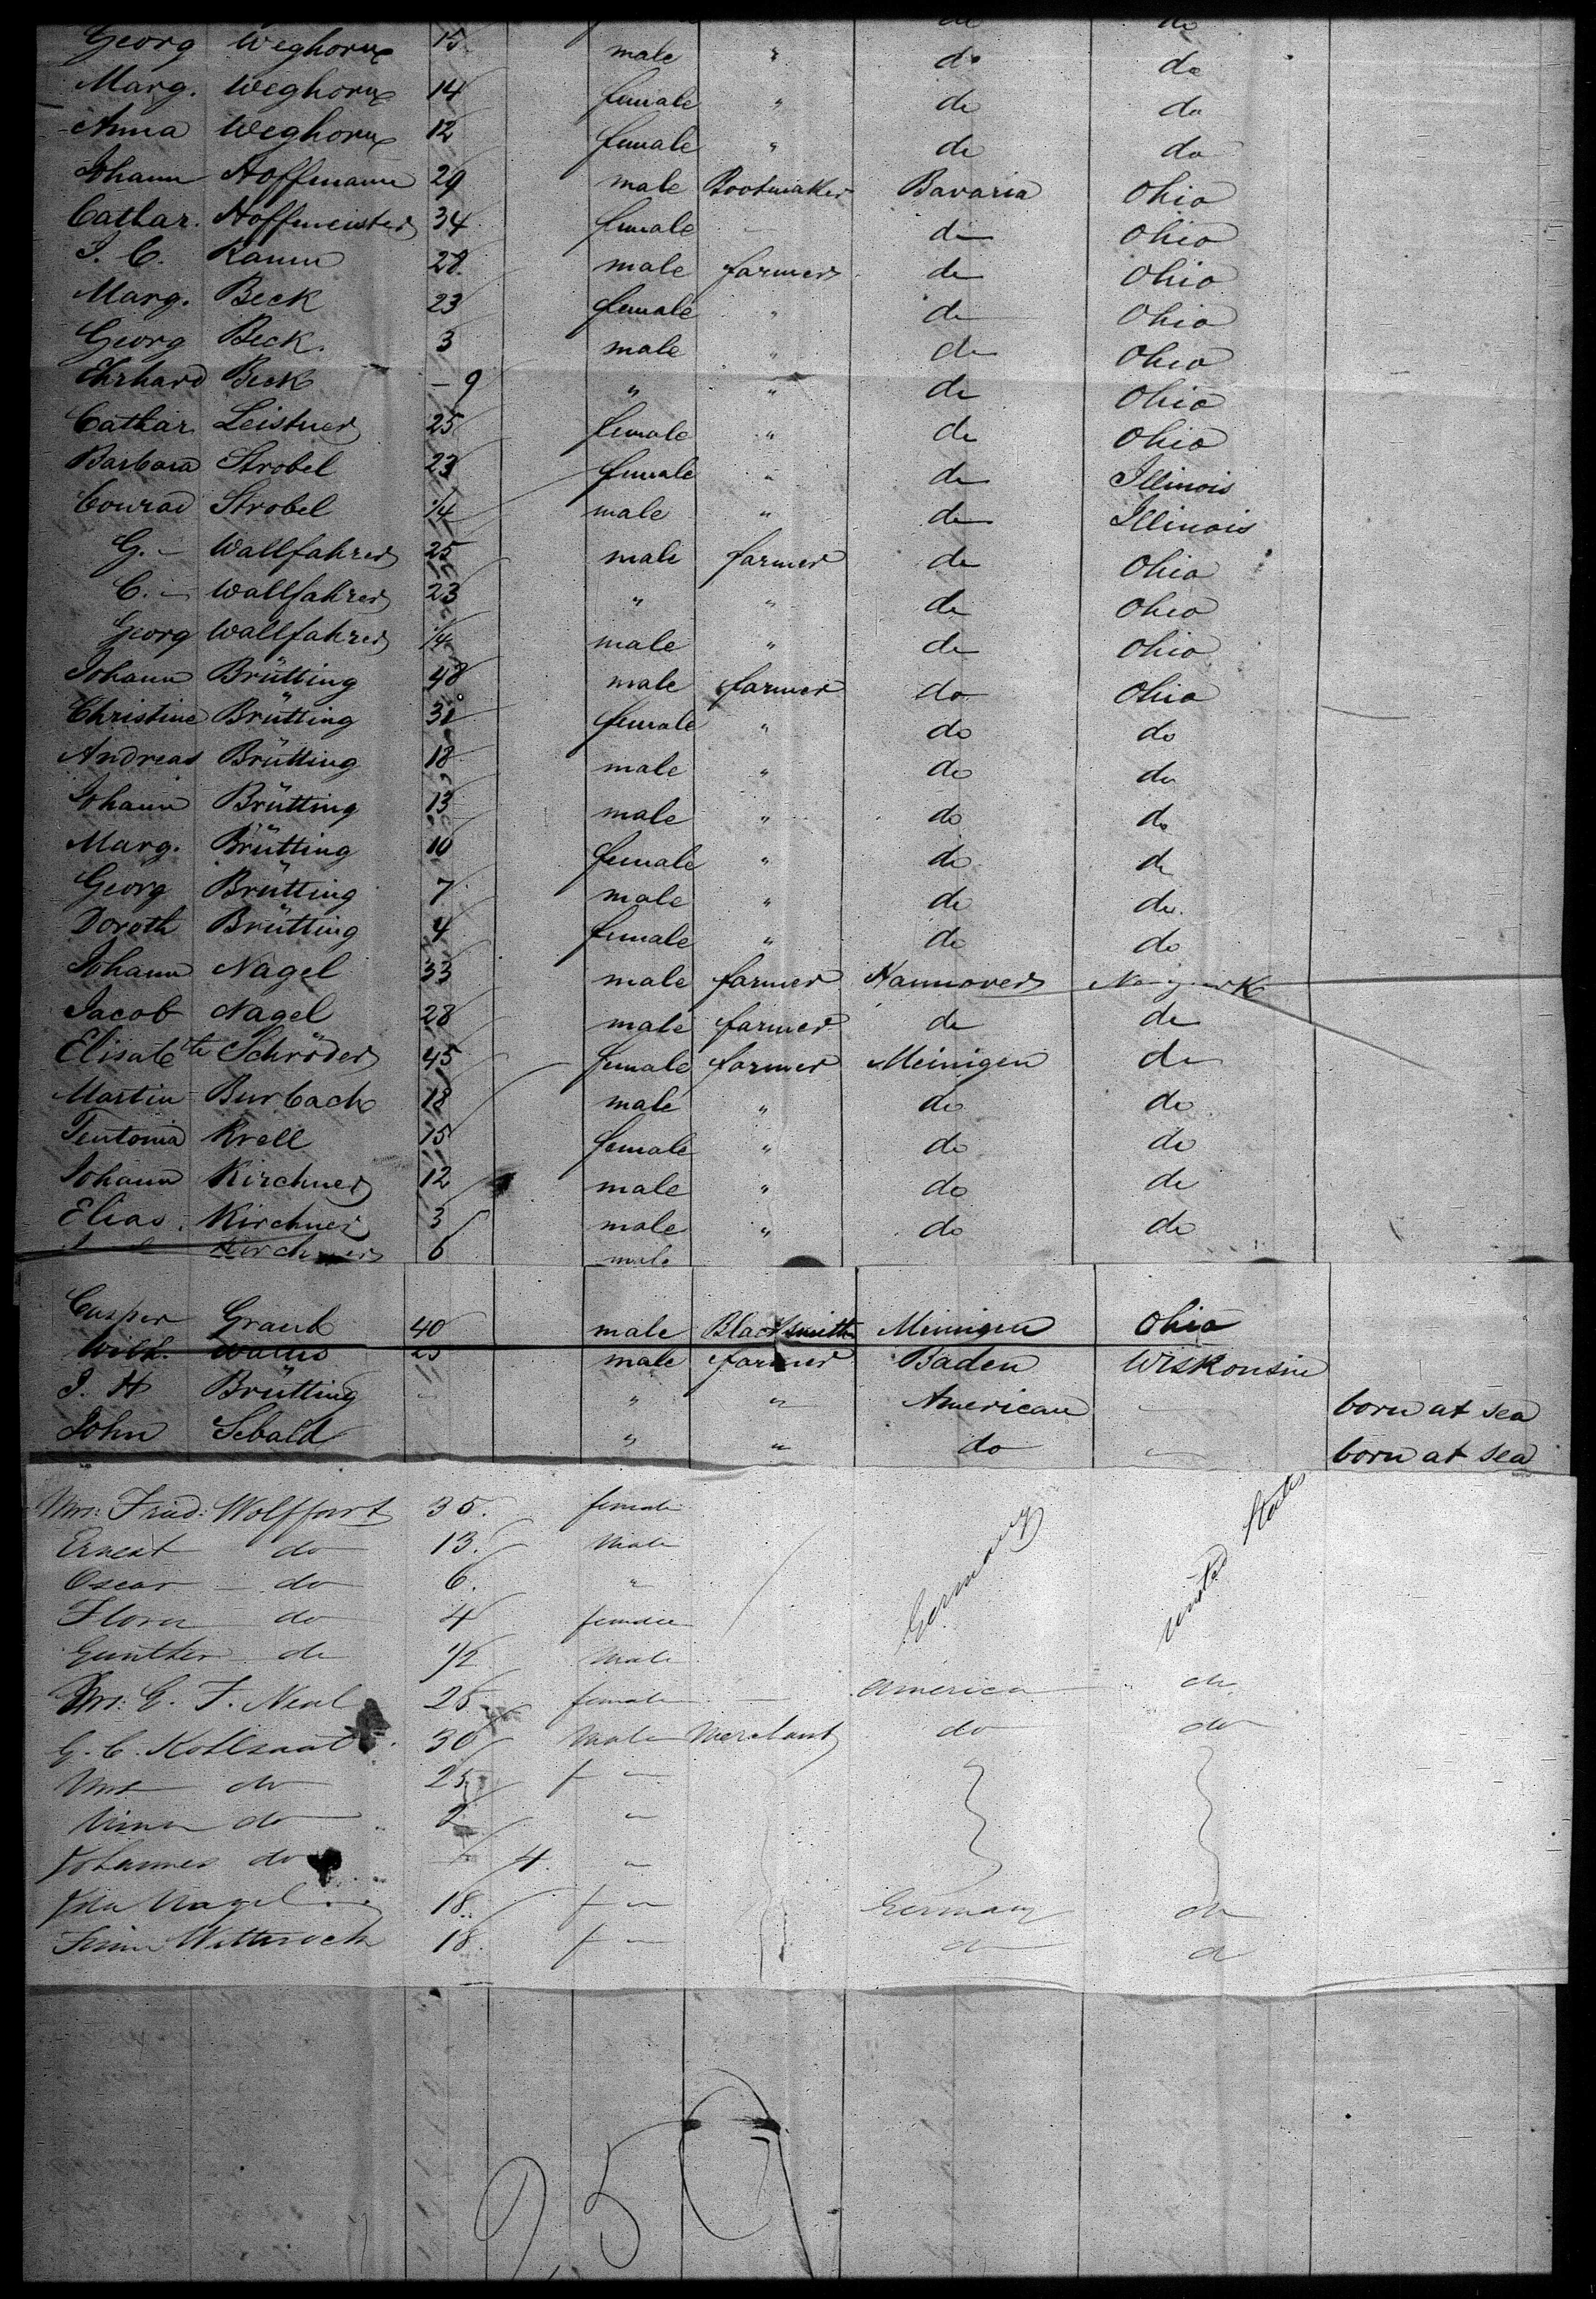 do do
Georg Weghorn 15 male " do do
Marg. Weghorn 14 female " do do
Anna Weghorn 12 female " do do
Johann Hoffmann 29 male Bootmaker Bavaria Ohio
Cathar. Hoffmeister 34 female — do Ohio
J. C. Ramm 28 male farmer do Ohio
Marg. Beck 23 female " do Ohio
Georg Beck. 3 male " do Ohio
Ehrhard Beck — 9 " " do Ohio
Cathar Leistner 25 female " do Ohio
Barbara Strobel 23 female " do Illinois
Conrad Strobel 1/4 male " do Illinois
G. — Wallfahrer 25 male farmer do Ohio
C. — Wallfahrer 23 " " do Ohio
Georg Wallfahrer 1/4 male " do Ohio
Johann Brütting 48 male farmer do Ohio
Christine Brütting 31 female " do do
Andreas Brütting 18 male " do do
Johann Brütting 13 male " do do
Marg. Brütting 10 female " do do
Georg Brütting 7 male " do do.
Doroth Brütting 4 female " do do
Johann Nagel 33 male farmer Hannover
Jacob Nagel 28 male farmer do do
Elisabeth Schröder 45 female farmer Meinigen do
Martin Burbach 18 male " do do
Teutonia Krell 15 female " do do
Johann Kirchner 12 male " do do
Elias Kirchner 3 male " do do
Kirchner 6 male
Casper Graub 40 male Blacksmith Meinigen Ohio
Wilh. 25 male farmer Baden Wiskonsin
J. H Brütting — " " American — born at sea
John Sebald " " do — born at sea
Mrs: Fried: Wolffart 35. female Germany United States
Ernest do 13. Male
Oscar — do 6. "
Flora do 4 female
Gunther do 1/2 Male
Mrs: G. F. Neal 25 female America do
G. C. Kohlsaat 30 Male Merchant do do
Mrs do 25 f —
Nina do 2 "
Johannes do 4. "
Nagel 18. f — Germany do
Wittrock 18. f — do do
250